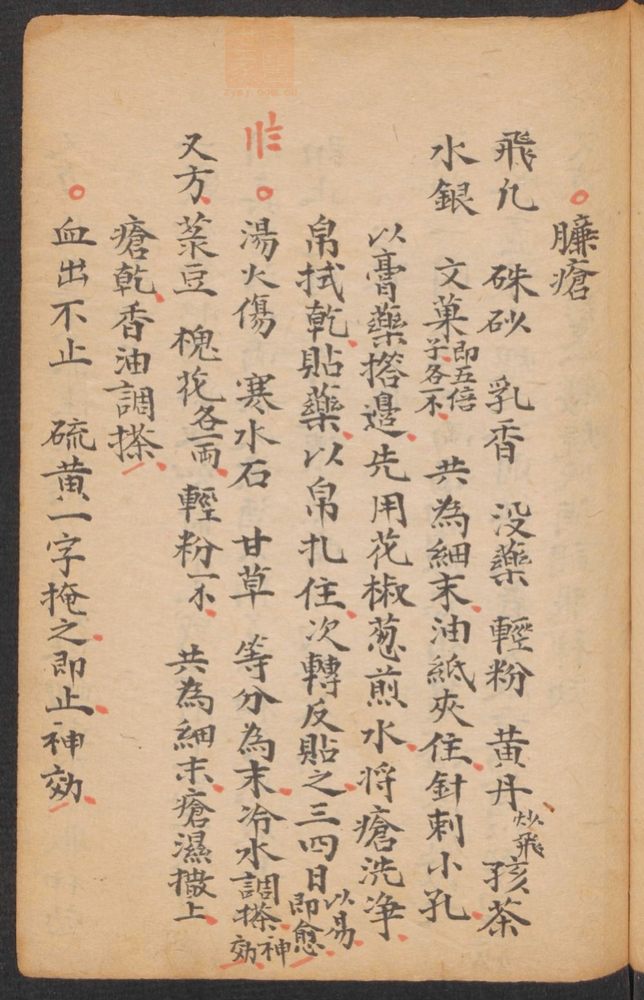 臁瘡
飛凢 硃砂 乳香 没藥 輕粉 黄丹炒飛 孩茶
水銀 文菓即五倍子各一不 共為細末油紙夾住針刺小孔
以膏藥搭邉先用花椒葱煎水将瘡洗净
帛拭乾貼藥以帛扎住次轉反貼之三四日以易即愈
湯火傷 寒水石 甘草 等分為末冷水調搽神効
又方 菉豆 槐花各一両 輕粉一不 共為細末瘡濕撒上
瘡乾香油調搽
血出不止 硫黄一字掩之即止神効